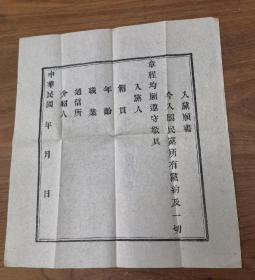 入黨願書
今入國民黨所有黨約及一切
章程均願遵守敬具
入黨人
籍貫
年齡
職業
通信所
介紹人
中華民國 年 月 日